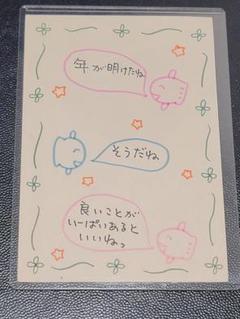 年が明けたね
そうだね
良いことが
いーぱいあると
いいねっ